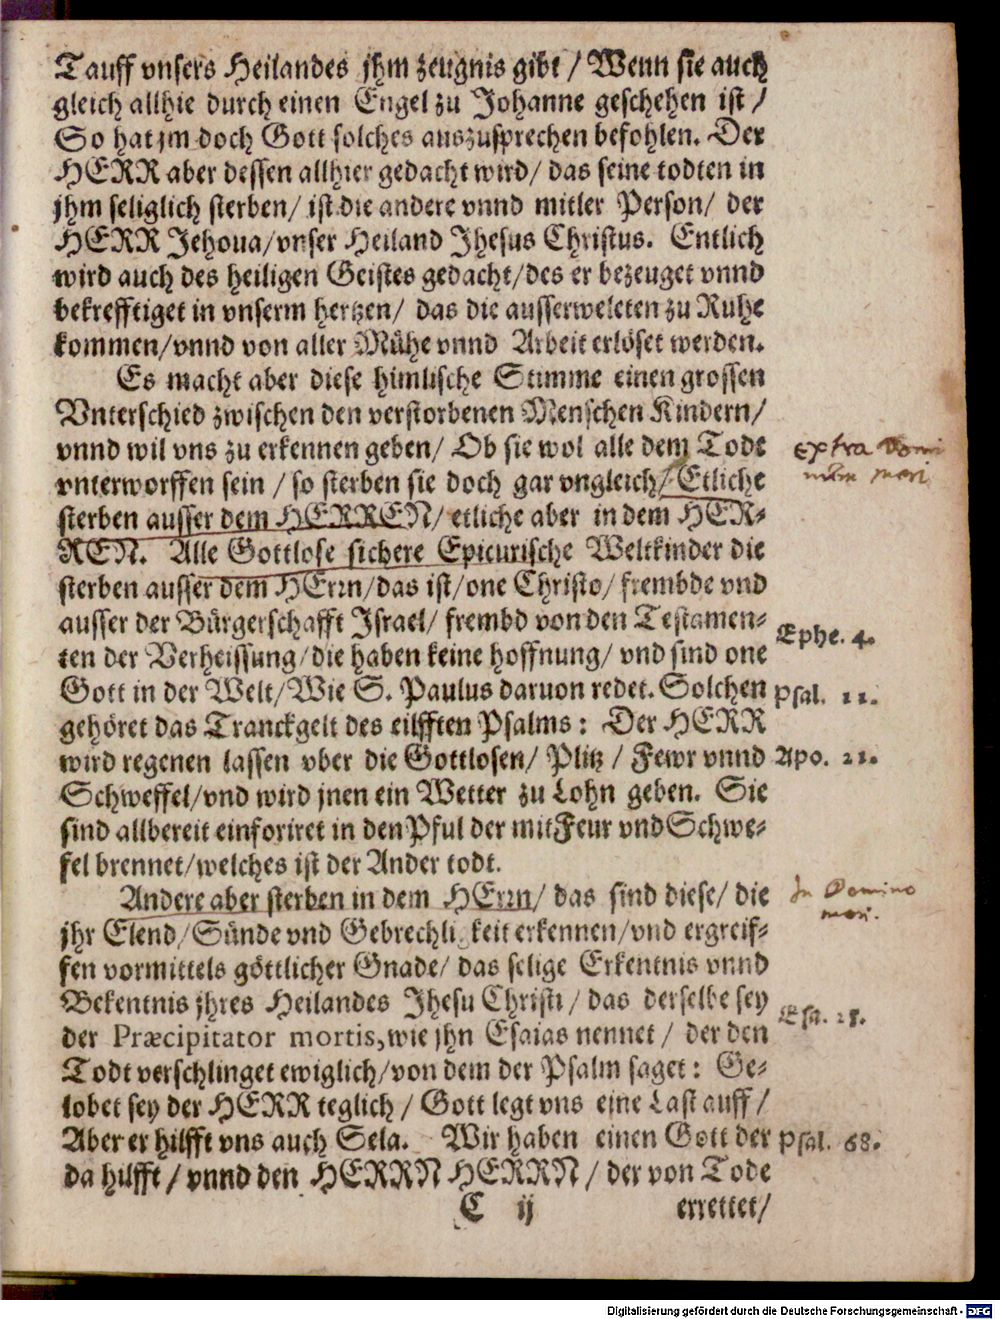 Tauff vnsers Heilandes jhm zeugnis gibt / Wenn sie auch
gleich allhie durch einen Engel zu Johanne geschehen ist /
So hat jm doch Gott solches auszusprechen befohlen. Der
HERR aber dessen allhier gedacht wird / das seine todten in
jhm seliglich sterben / ist die andere vnnd mitler Person / der
HERR Jehoua / vnser Heiland Jhesus Christus. Entlich
wird auch des heiligen Geistes gedacht / des er bezeuget vnnd
bekrefftiget in vnserm hertzen / das die ausserweleten zu Ruhe
kommen / vnnd von aller Mühe vnnd Arbeit erlöset werden.
Es macht aber diese himlische Stimme einen grossen
Vnterschied zwischen den verstorbenen Menschen Kindern /
vnnd wil vns zu erkennen geben / Ob sie wol alle dem Tode
extra Domi
vnterworffen sein / so sterben sie doch gar vngleich / Etliche
num mori
sterben ausser dem HERREN / etliche aber in dem HER-
REN. Alle Gottlose sichere Epicurische Weltkinder die
sterben ausser dem HErrn / das ist / one Christo / frembde vnd
ausser der Bürgerschafft Israel / frembd von den Testamen-
Ephe. 4.
ten der Verheissung / die haben keine hoffnung / vnd sind one
Gott in der Welt / Wie S. Paulus daruon redet. Solchen
Psal. 11.
gehöret das Tranckgelt des eilfften Psalms : Der HERR
wird regenen lassen vber die Gottlosen / Plitz / Fewr vnnd
Apo. 21.
Schweffel / vnd wird jnen ein Wetter zu Lohn geben. Sie
sind allbereit einforiret in den Pful der mit Feur vnd Schwe-
fel brennet / welches ist der Ander todt.
Andere aber sterben in dem HErrn / das sind diese / die
In Domino
mori.
jhr Elend / Sünde vnd Gebrechligkeit erkennen / vnd ergreif-
fen vormittels göttlicher Gnade / das selige Erkentnis vnnd
Bekentnis jhres Heilandes Jhesu Christi / das derselbe sey
Esa. 25.
der Præcipitator mortis, wie jhn Esaias nennet / der den
Todt verschlinget ewiglich / von dem der Psalm saget : Ge-
lobet sey der HERR teglich / Gott legt vns eine Last auff /
Aber er hilfft vns auch Sela. Wir haben einen Gott der
Psal. 68.
da hilfft / vnnd den HERRN HERRN / der von Tode
C ij
errettet /
Digitalisierung gefördert durch die Deutsche Forschungsgemeinschaft - DFG